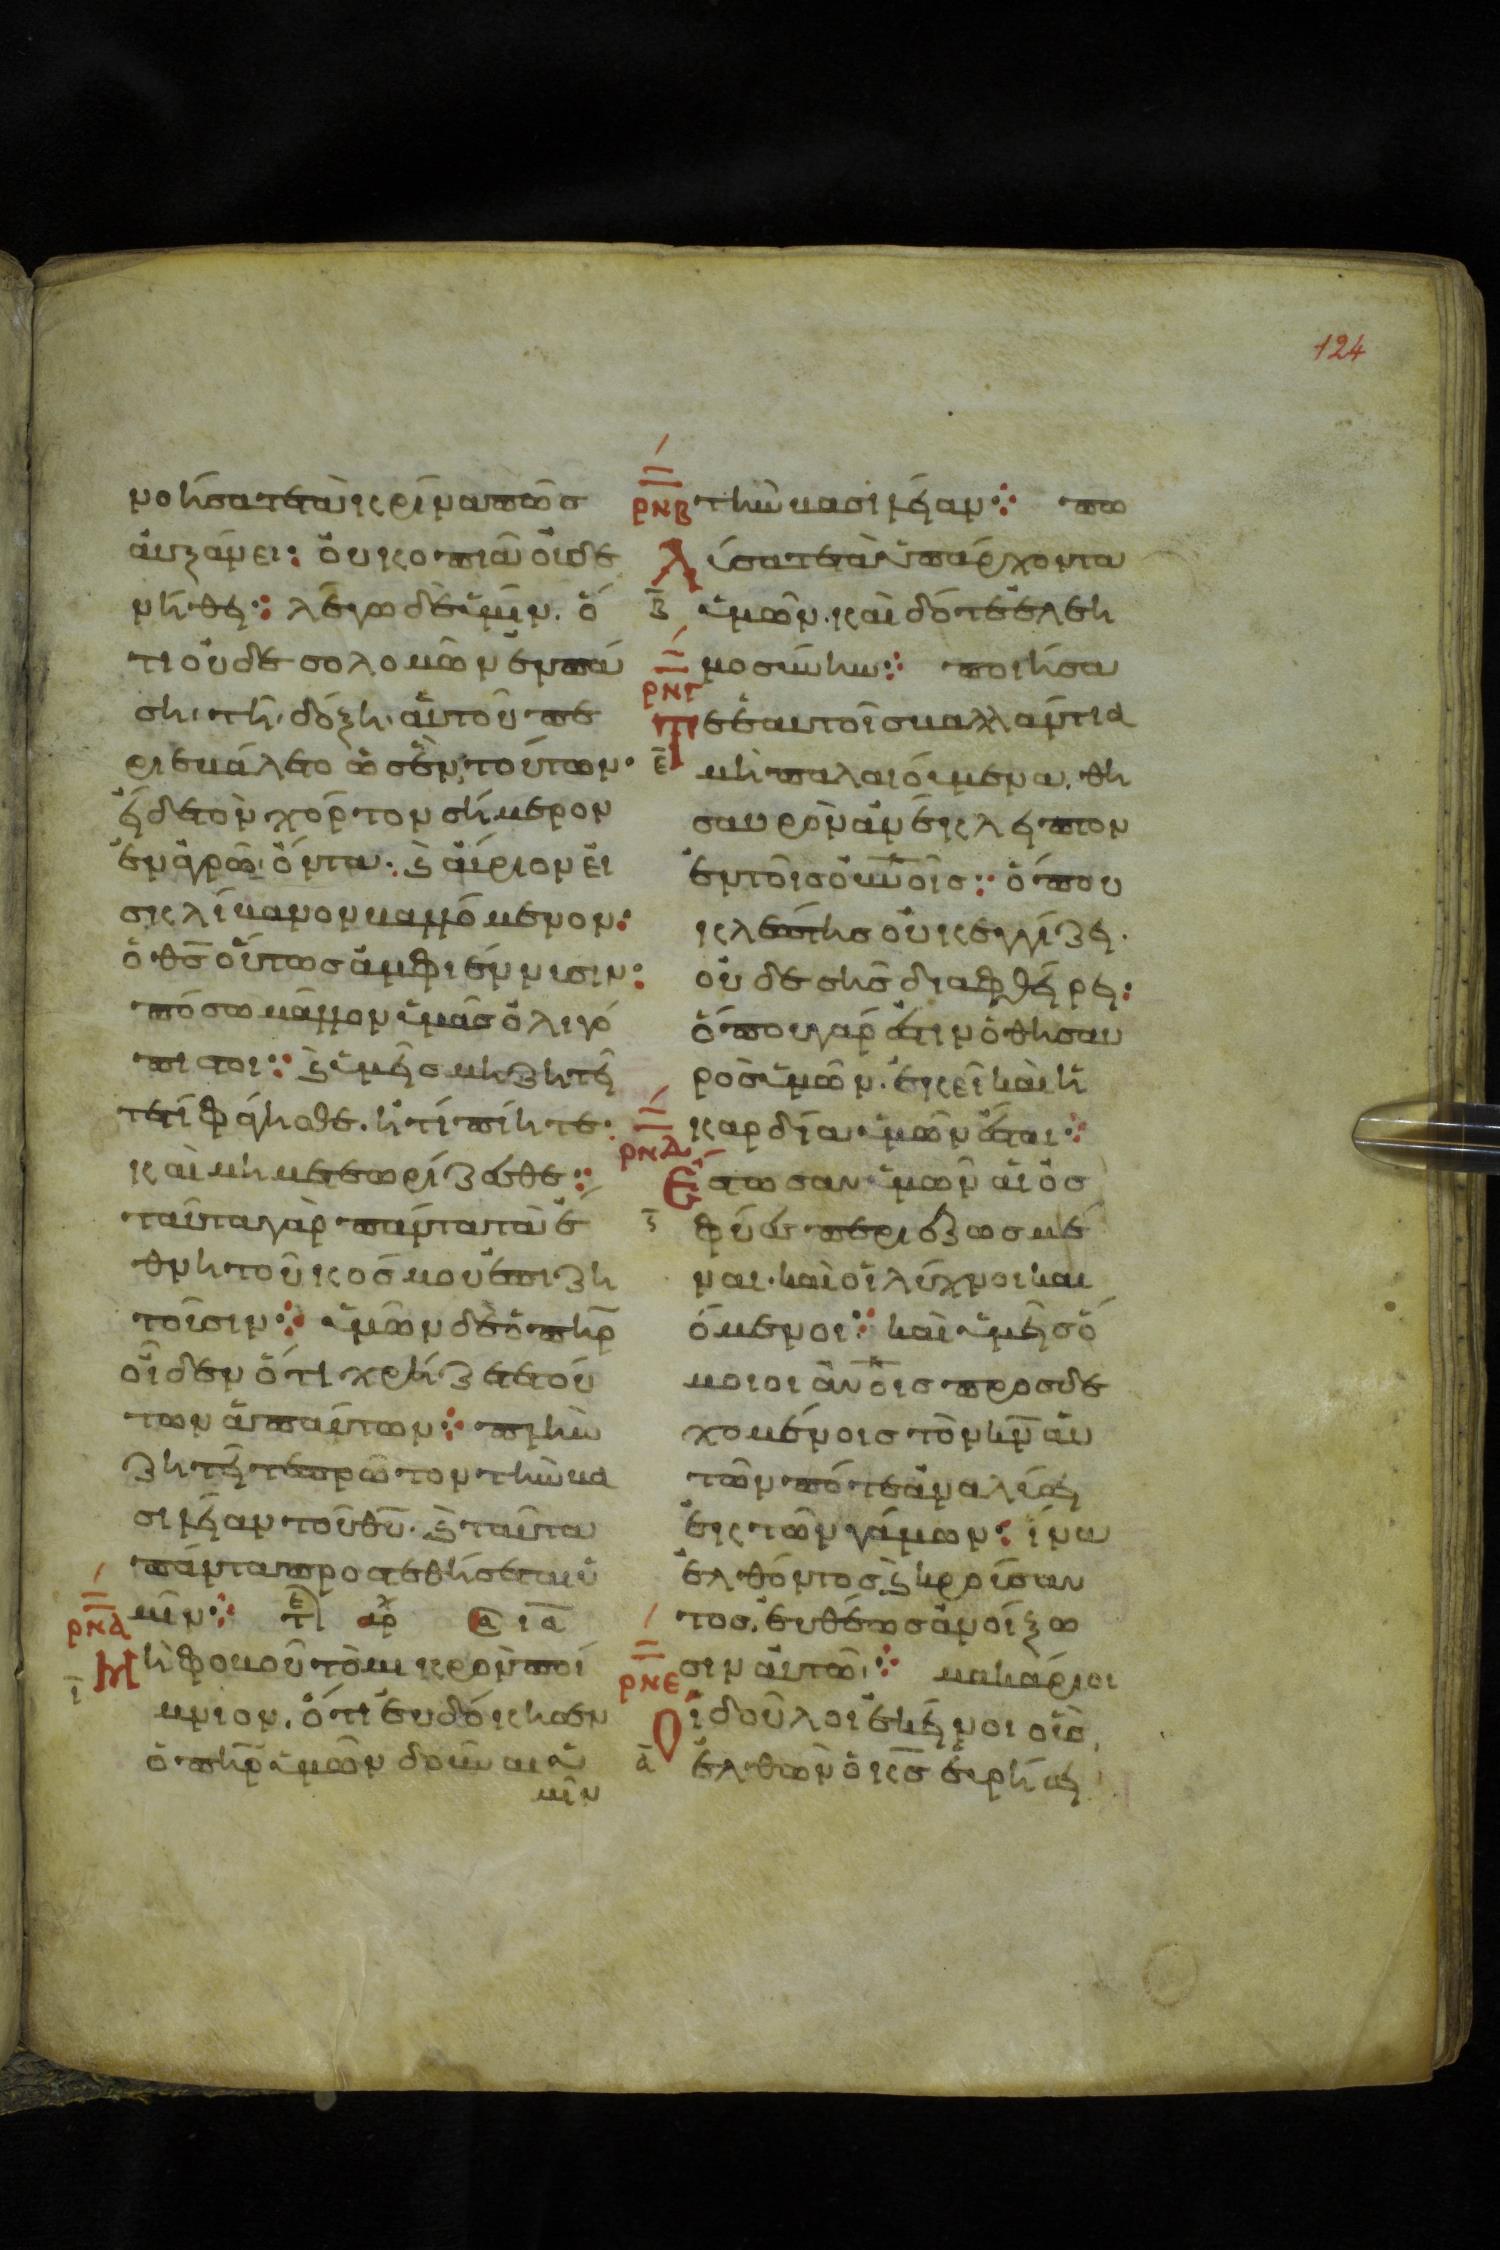 124
νοήσατε τὰ κρίνα πῶς
ἀυξάνει: ὄυ κοπιᾶ οὐδὲ
νήθει: λέγω δὲ ὑμῖν. ὅ
τι οὐδὲ σολομῶν ἐν πά
σηι τῆι δόξηι αὐτοῦ πε
ριεβάλετο ὡς ἓν τούτων·
εἰ δὲ τὸν χόρτον σήμερον
ἐν ἀγρῶ ὄντα· ϗ ἄυριον ἐι
σ κλίβανον βαλλόμενον:
ὁ θς̅ οὕτωσ ἀμφιέννισιν:
πόσω μᾶλλον ὑμᾶσ ὀλιγό
πιστοι: ϗ ὑμεῖσ μὴ ζητεῖ
τε τί φάγησθε. ἢ τί πίητε·
καὶ μὴ μετεωρίζεσθε:
ταῦτα γὰρ πάντα τὰ ἔ
θνη τοῦ κόσμου ἐπιζη
τοῖσιν: ὑμῶν δὲ ὁ πηρ̅
οἶδεν ὅτι χρήζετε τού
των ἁπάντων: πλὴν
ζητεῖτε πρῶτον τὴν βα
σιλείαν τοῦ θυ̅. ϗ ταῦτα
πάντα προστεθήσεται ὑ
ρνα μῖν: τε̅ αρχ ια̅
ι̅ Μὴ φοβοῦ τὸ μικρὸν ποί
μνιον. ὅτι ἐυδόκησεν
ὁ πηρ̅ ὑμῶν δοῦναι ὑ
μῖν
ρνβ τὴν βασιλείαν: πω
λήσατε τὰ ὑπάρχοντα
β̅ ὑμῶν· καὶ δότε ἐλεη
ρνγ μοσύνην: ποιήσα
τε ἑαυτοῖσ βαλλάντια
ε̅ μὴ παλαιόυμενα. θη
σαυρὸν ἀνέκλειπτον
ἐν τοῖσ οὐνοῖσ: ὅπου
κλέπτησ οὐκ εγγίζει·
οὐδὲ σὴσ διαφθείρει:
ὅπου γάρ ἐστιν ὁ θησαυ
ροσ ὑμῶν· ἐκεῖ καὶ ἡ
ρνδ καρδία ὑμῶν ἔσται:
Ἔστωσαν ὑμῶν αἱ ὀσ
φύεσ περιεζωσμέ
ναι· καὶ οἱ λύχνοι και
όμενοι: καὶ ὑμεῖσ ὅ
μοιοι ἀν̅οισ προσδε
χομένοισ τὸν κν̅ ἁυ
τῶν πότε ἀναλύσει
ἐκ τῶν γάμων: ἵνα
ἐλθόντοσ ϗ κρούσαν
τοσ. ἐυθέωσ ἀνοίξω
ρνε σιν ἀυτῶ: μακάριοι
Οἱ δοῦλοι ἐκεῖνοι οὓσ
α̅ ἐλθὼν ὁ κς̅ εὑρήσει